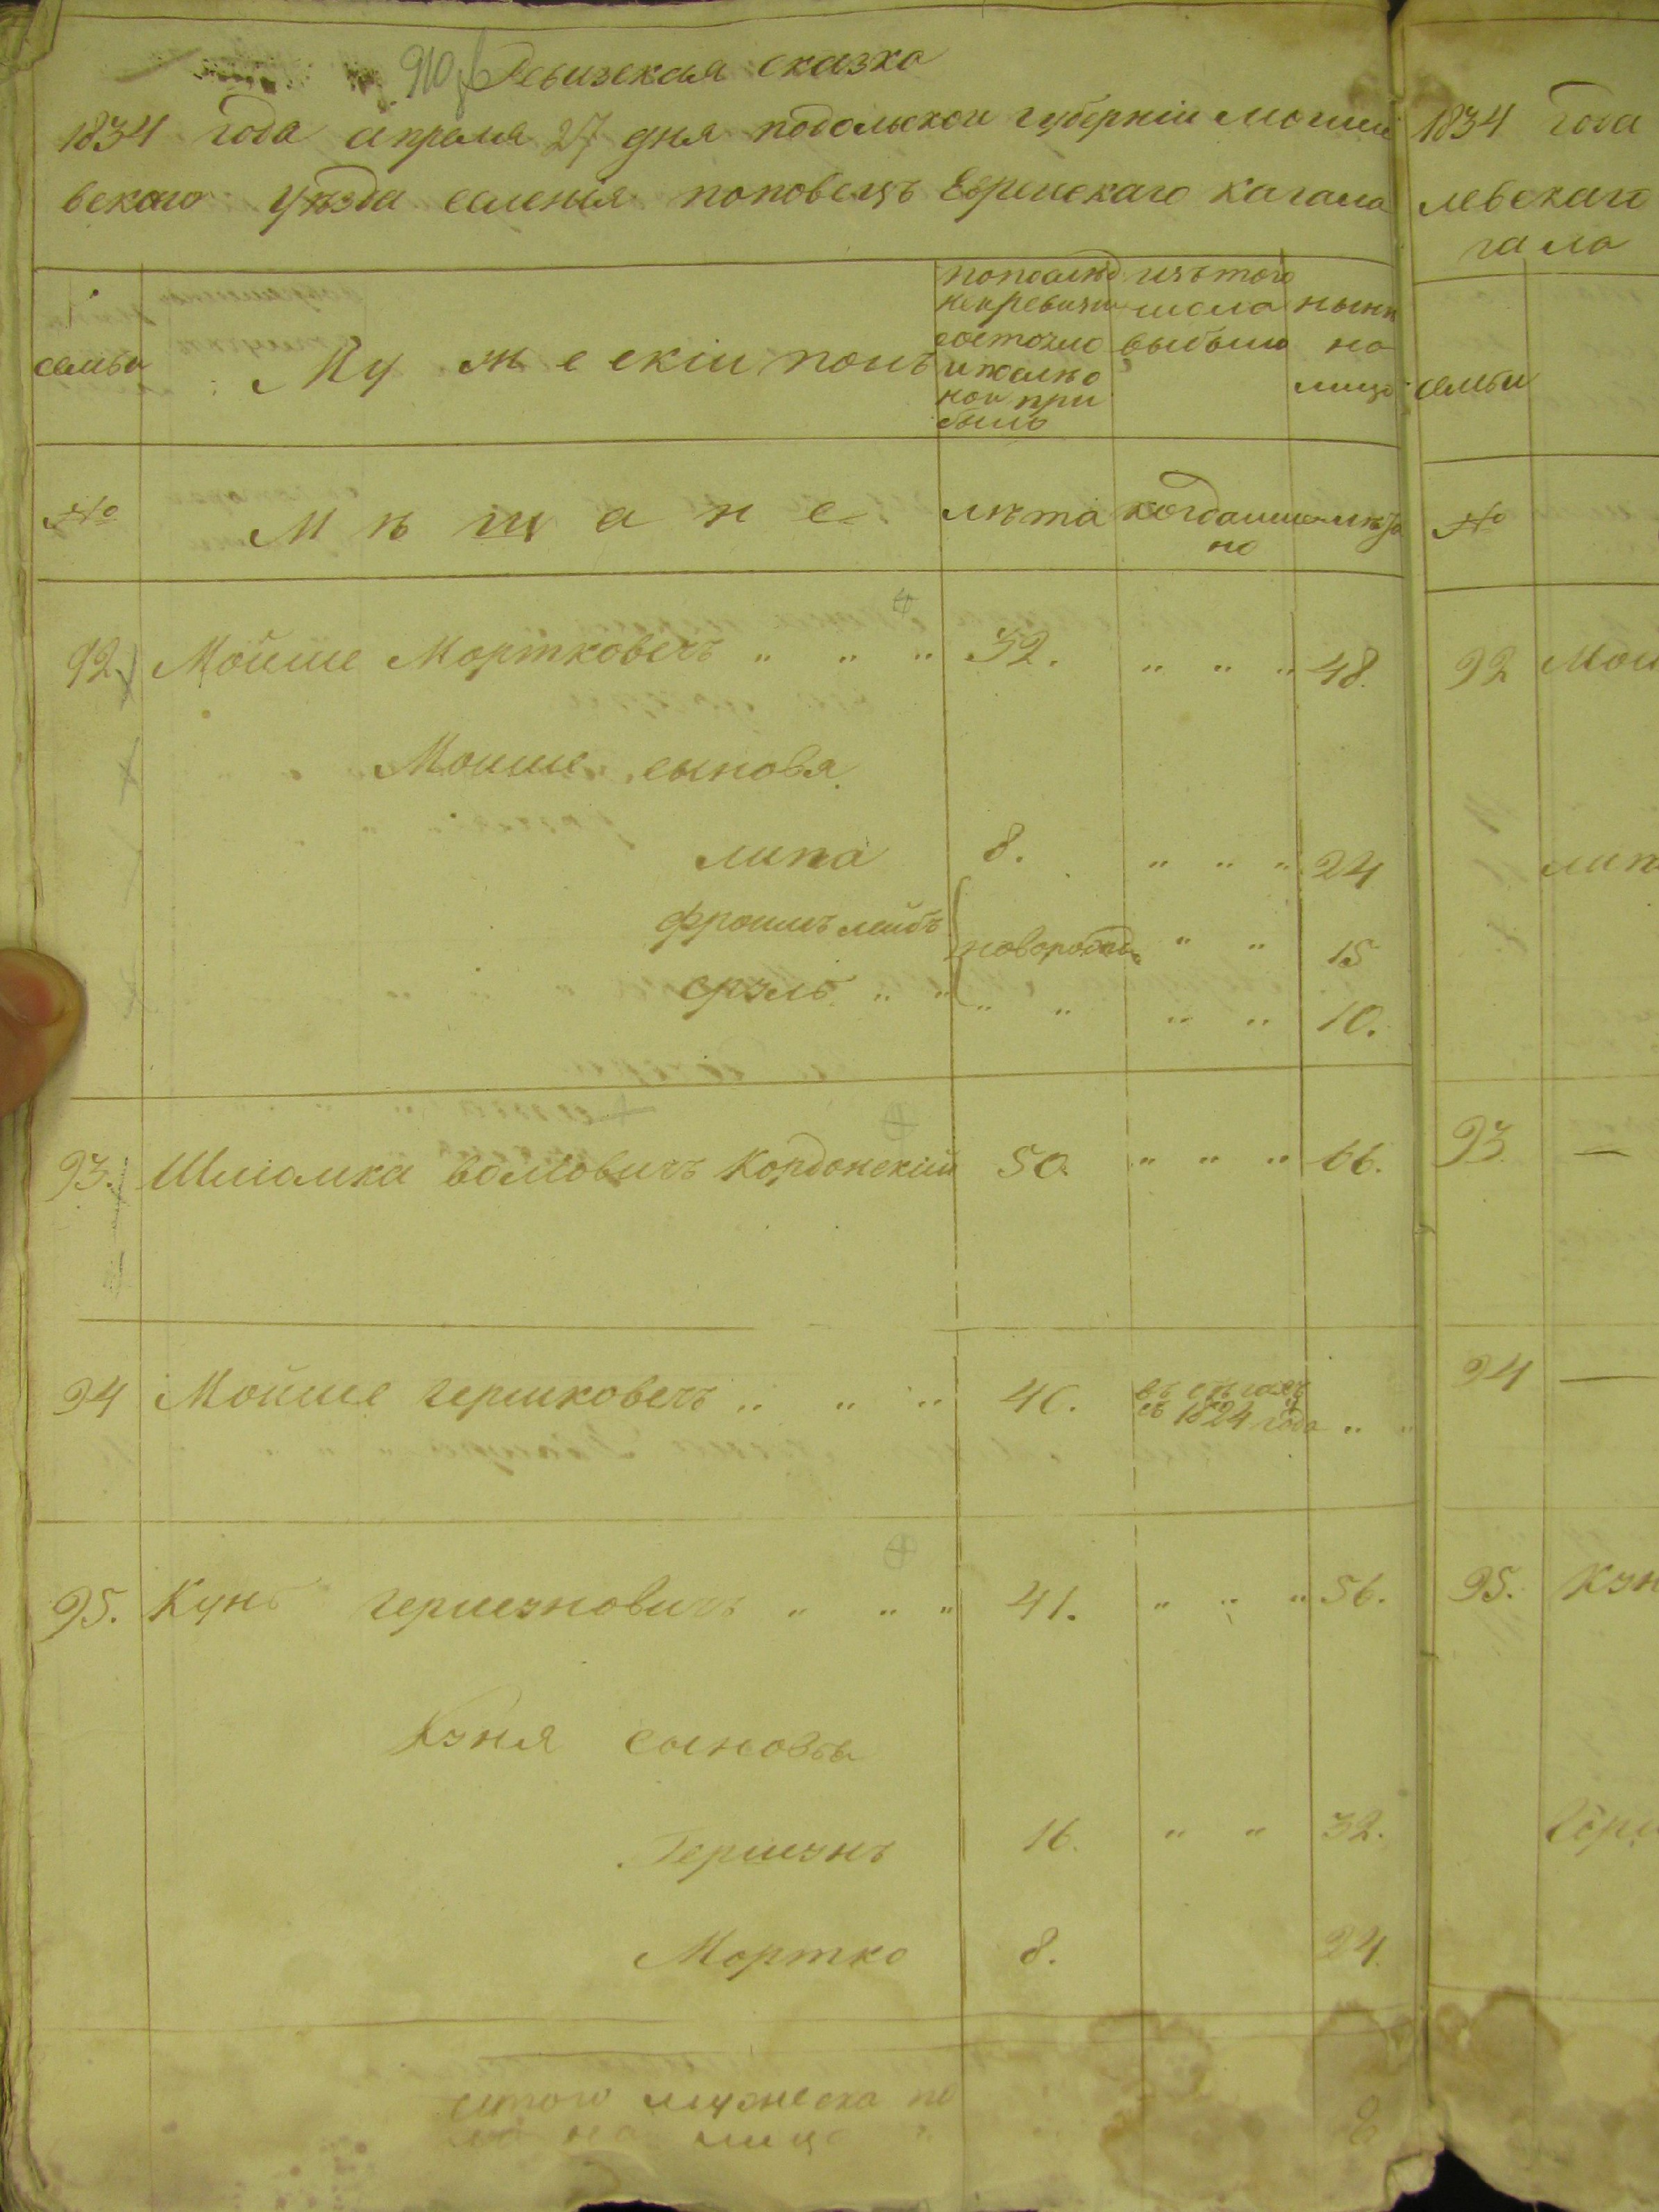 910 Ревизская сказка
1834 года апреля 27 дня подольской губерніи могиле
вского Уезда селенія поповецъ Еврейскаго кагала
семьи
Мужескій полъ
по последней ревизіи состояло и после оной прибыло
изъ того числа выбыло
ныне на лицо
№
Мѣщане
лѣта
когда именно
лѣта
92. Мойше Мортковечъ " " " 32. " " " 48.
Моише сыновя
липа 8. " " " 24
фроимъ лейбъ новорожд " " 15
срэль " " " " " " 10.
93. Шліомка волковичъ Кордонскій 50. " " " 66.
94 Мойше гершковечъ " " " 40. въ 1824 года " "
95. Кунь гершеновичъ " " " 41. " " " 56.
Кэня сыновья
Гершэнъ 16. " " 32.
Мортко 8. 24.
итого мужеска по
ла на лицо 8
1834 года
левскаго
гала
семьи
№
92 Мой
лип
93 —
94 —
95. Кэн
Герш